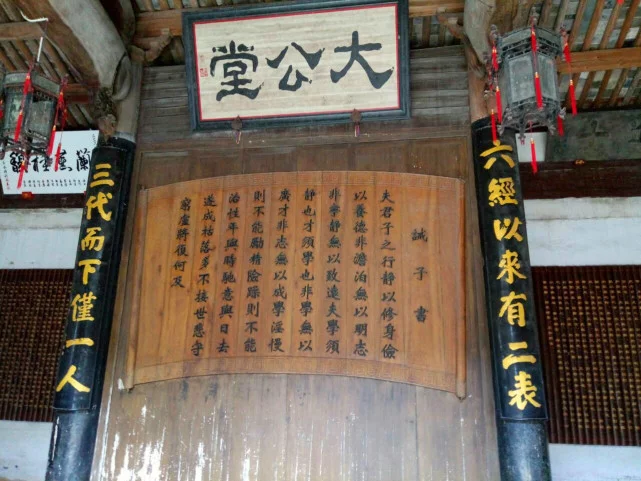 大公堂
六經以來有二表
誡子書
夫君子之行靜以修身儉
以養德非澹泊無以明志
非寧靜無以致遠夫學須
靜也才須學也非學無以
廣才非志無以成學滛慢
則不能勵精險躁則不能
治性年與時馳意與日去
遂成枯落多不接世悲守
窮廬將復何及
三代而下僅一人